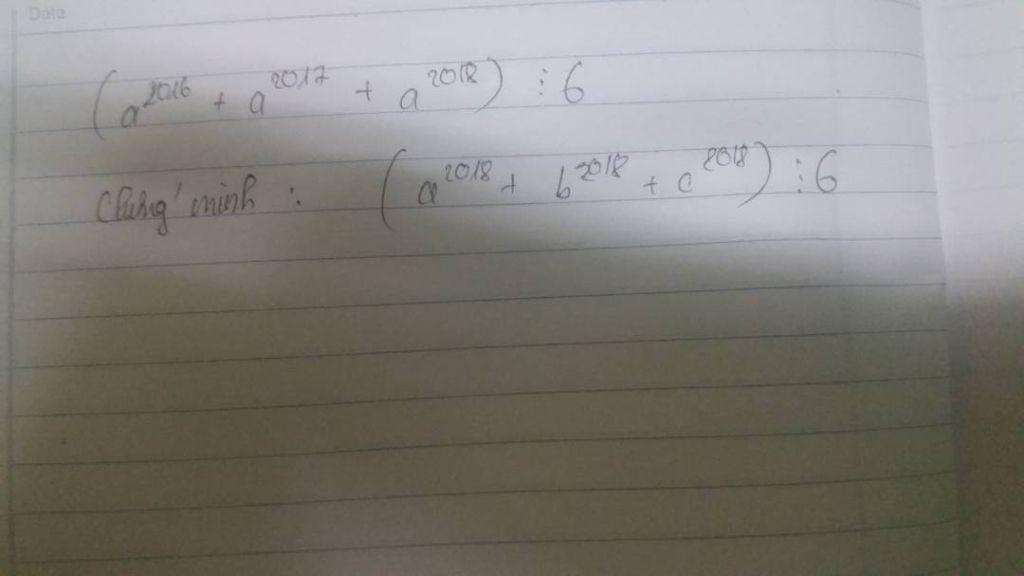 Date
(a^2016 + a^2017 + a^2018) ⋮ 6
Chứng minh : (a^2018 + b^2018 + c^2018) ⋮ 6